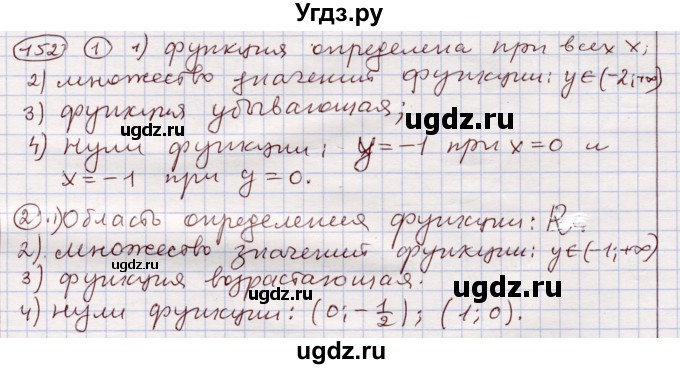 Угдз.ру
152 ① 1) функция определена при всех x;
2) множество значений функции: y∈(-2;+∞)
3) функция убывающая;
4) нули функции: y=-1 при x=0 и
x=-1 при y=0.
② 1) Область определения функции: R.
2) множество значений функции: y∈(-1;+∞)
3) функция возрастающая.
4) нули функции: (0;-1/2); (1;0).
ugdz.ru
ugdz.ru
ugdz.ru
ugdz.ru
ugdz.ru
ugdz.ru
ugdz.ru